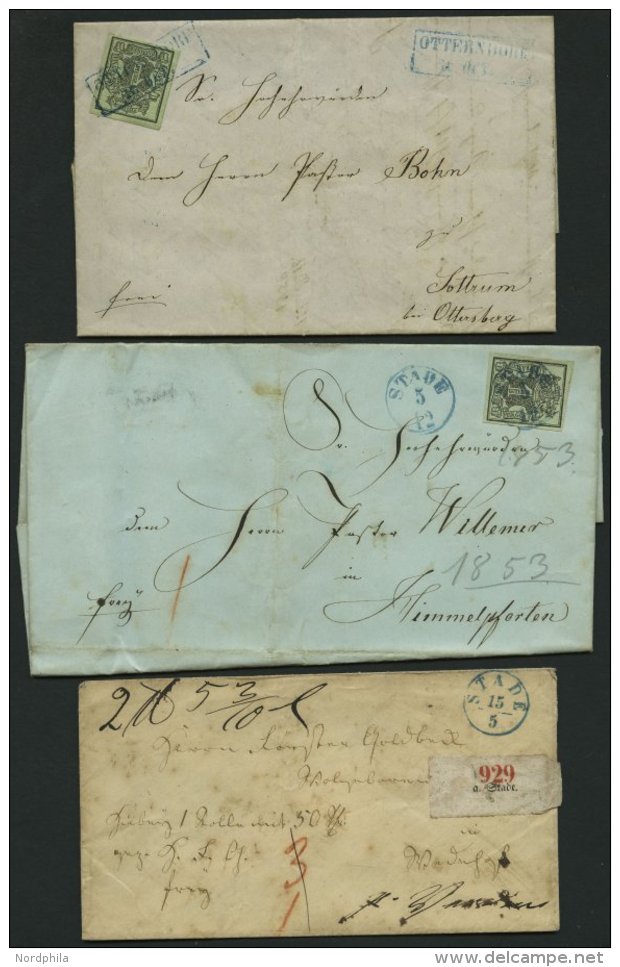 OTTERNDORF
Sr. Hochehrwürden
dem Herrn Pastor Bohn
zu
Sottrum
bei Ottersberg
frei
STADE
5
12
Sr. Hochehrwürden
1853.
dem Herrn Pastor Willemer
in
1853
Himmelpforten
frey
2 53/10
STADE
15
5
Herrn Förster Goldbeck
Wohlgeboren
929
a. Stade.
Hiebey 1 Rolle mit 50
in
frey
Nordphila
delcampe.net